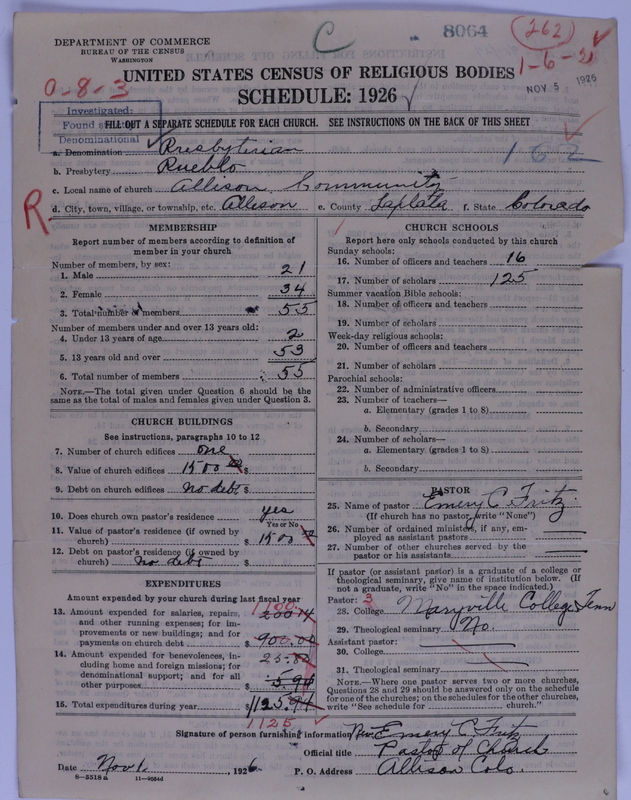 8064
C
(262)
DEPARTMENT OF COMMERCE
BUREAU OF THE CENSUS
WASHINGTON
1-6-2
NOV 5 1926
UNITED STATES CENSUS OF RELIGIOUS BODIES
0-8-3
SCHEDULE: 1926
Investigated:
Found
Denominational
FILL OUT A SEPARATE SCHEDULE FOR EACH CHURCH. SEE INSTRUCTIONS ON THE BACK OF THIS SHEET
a. Denomination Presbyterian
162
b. Presbytery Pueblo
c. Local name of church Allison Community
R.
d. City, town, village, or township, etc. Allison e. County Laplata f. State Colorado
MEMBERSHIP
Report number of members according to definition of member in your church
Number of members, by sex:
1. Male 21
2. Female 34
3. Total number of members 55
Number of members under and over 13 years old:
4. Under 13 years of age 2
5. 13 years old and over 53
6. Total number of members 55
NOTE.—The total given under Question 6 should be
same as the total of males and females given under Question 3.
CHURCH BUILDINGS
See instructions, paragraphs 10 to 12
7. Number of church edifices one
8. Value of church edifices 1500 00 $
9. Debt on church edifices No debt $
10. Does church own pastor's residence yes
Yes or No
11. Value of pastor's residence (if owned by
church) $ 1500 00
12. Debt on pastor's residence (if owned by
church) No debt $
EXPENDITURES
Amount expended by your church during last fiscal year
1100
13. Amount expended for salaries, repairs,
and other running expenses; for im-
provements or new buildings; and for
payments on church debt $ 900.00
14. Amount expended for benevolences, in-
cluding home and foreign missions; for
denominational support; and for all
other purposes
25.00
5.94
15. Total expenditures during year $ 1125.94
1125
CHURCH SCHOOLS
Report here only schools conducted by this church
Sunday schools:
16. Number of officers and teachers 16
17. Number of scholars 125
Summer vacation Bible schools:
18. Number of officers and teachers
19. Number of scholars
Week-day religious schools:
20. Number of officers and teachers
21. Number of scholars
Parochial schools:
22. Number of administrative officers
23. Number of teachers—
a. Elementary (grades 1 to 8)
b. Secondary
24. Number of scholars—
a. Elementary (grades 1 to 8)
b. Secondary
PASTOR
25. Name of pastor Emery C. Fritz.
(If church has no pastor, write "None")
26. Number of ordained ministers, if any, em-
ployed as assistant pastors
27. Number of other churches served by the
pastor or his assistants
If pastor (or assistant pastor) is a graduate of a college or
theological seminary, give name of institution below. (If
not a graduate, write "No" in the space indicated.)
Pastor: 3
28. College Maryville College, Tenn
29. Theological seminary No.
Assistant pastor:
30. College
31. Theological seminary
NOTE.—Where one pastor serves two or more churches,
Questions 28 and 29 should be answered only on the schedule
for one of the churches; on the schedules for the other churches,
write "See schedule for church."
Signature of person furnishing information Rev. Emery C. Fritz
Official title Pastor of Church
Date Nov 1. , 1926 P. O. Address Allison Colo.
8—5518 a